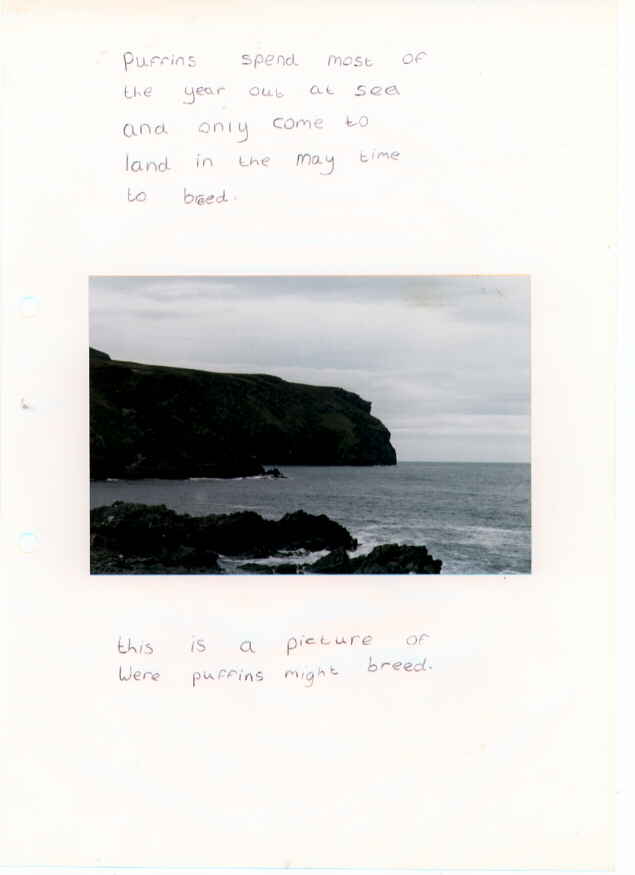 Puffins spend most of
the year out at sea
and only come to
land in the may time
to breed.
this is a picture of
Were puffins might breed.